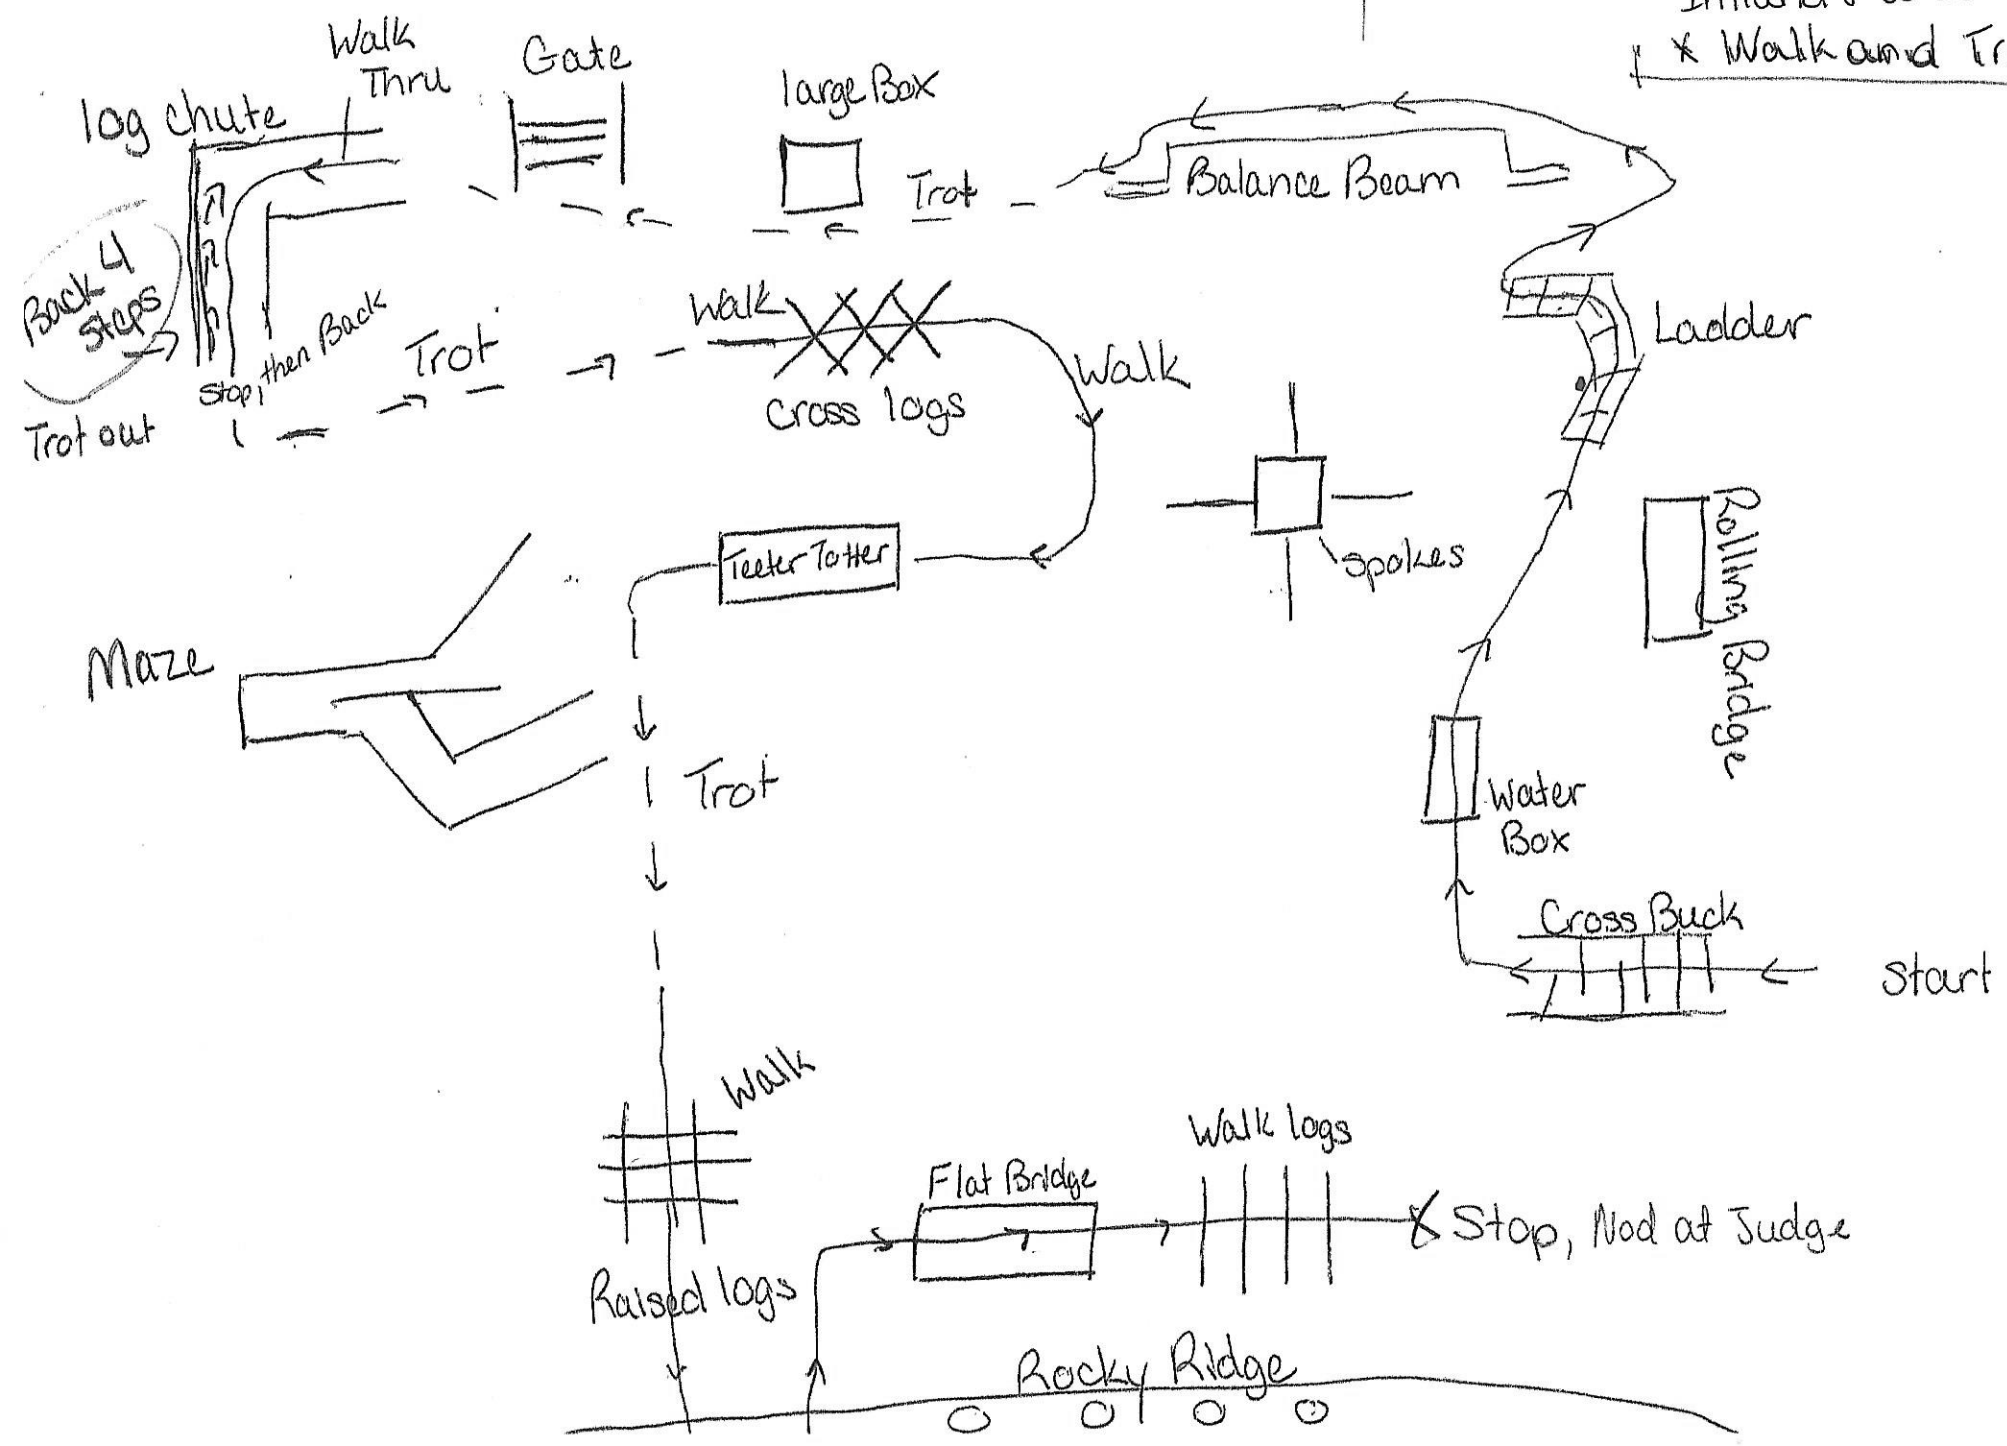 * Walk and Tr
Walk
Thru
Gate
large Box
log chute
Trot
Balance Beam
Back 4
Steps
Stop, then Back
Trot out
Trot
Walk
Cross logs
Walk
Ladder
Spokes
Rolling Bridge
Teeter Totter
Maze
Trot
Water
Box
Cross Buck
Start
Walk
Raised logs
Flat Bridge
Walk logs
X Stop, Nod at Judge
Rocky Ridge